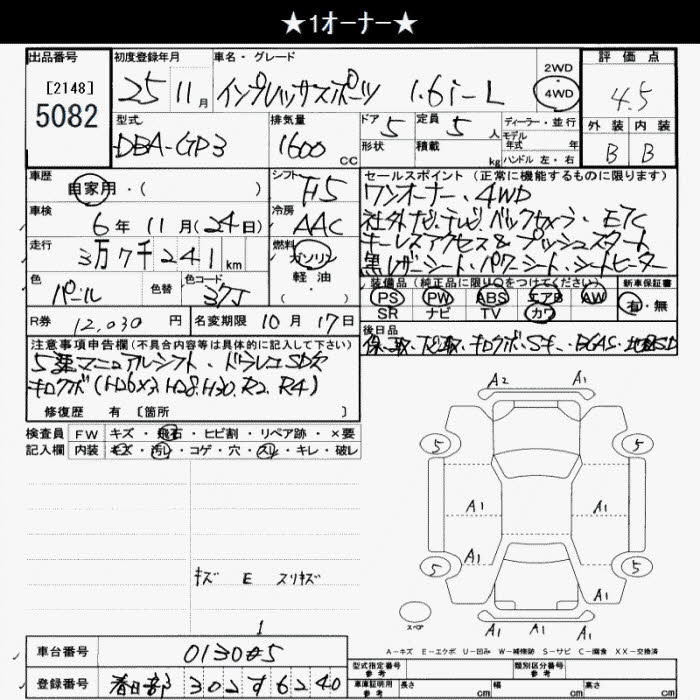 ★1オーナー★
出品番号
[2148]
5082
初度登録年月
25 11月
車名・グレード
インプレッサスポーツ 1.6i-L
2WD
4WD
評価点
4.5
外装 内装
B B
型式
DBA-GP3
排気量
1600 CC
ドア 5
形状
定員 5 人
積載 kg
ディーラー・並行
モデル
年式 年
ハンドル 左・右
車歴
自家用・( )
シフト
F5
車検
6年 11月(24日)
冷房
AAC
走行
3万7千241km
燃料
ガソリン
軽油
( )
色
パール
色替
色コード
37J
R券 12,030 円
名変期限 10月 17日
セールスポイント(正常に機能するものに限ります)
ワンオーナー、4WD
社外ナビ、テレビ、バックカメラ、ETC
キーレスアクセス&プッシュスタート
黒レザーシート、パワーシート、シートヒーター
装備品(純正品に限り○をつけてください)
新車保証書
PS PW ABS エアB AW
SR ナビ TV カワ
有・無
後日品
注意事項申告欄(不具合内容等は具体的に記入して下さい)
5速マニュアルシフト、ドラレコSD欠
キロクボ(H26X3,H28,H30,R2,R4)
修復歴 有 [箇所 ]
検査員
記入欄
FW キズ・飛石・ヒビ割・リペア跡・×要
内装 キズ・汚れ・コゲ・穴・スレ・キレ・破レ
A2 A1
5 5
A1 A1
A1
A1
5 5
A1
A1 A1 A1
スペア
キズ E スリキズ
1
A-キズ E-エクボ U-凹み W-補修跡 S-サビ C-腐食 XX-交換済
車台番号
013085
登録番号
春日部 302す6240
型式指定番号
参考
類別区分番号
参考
車庫証明用
参考
長さ cm
幅 cm
高さ cm